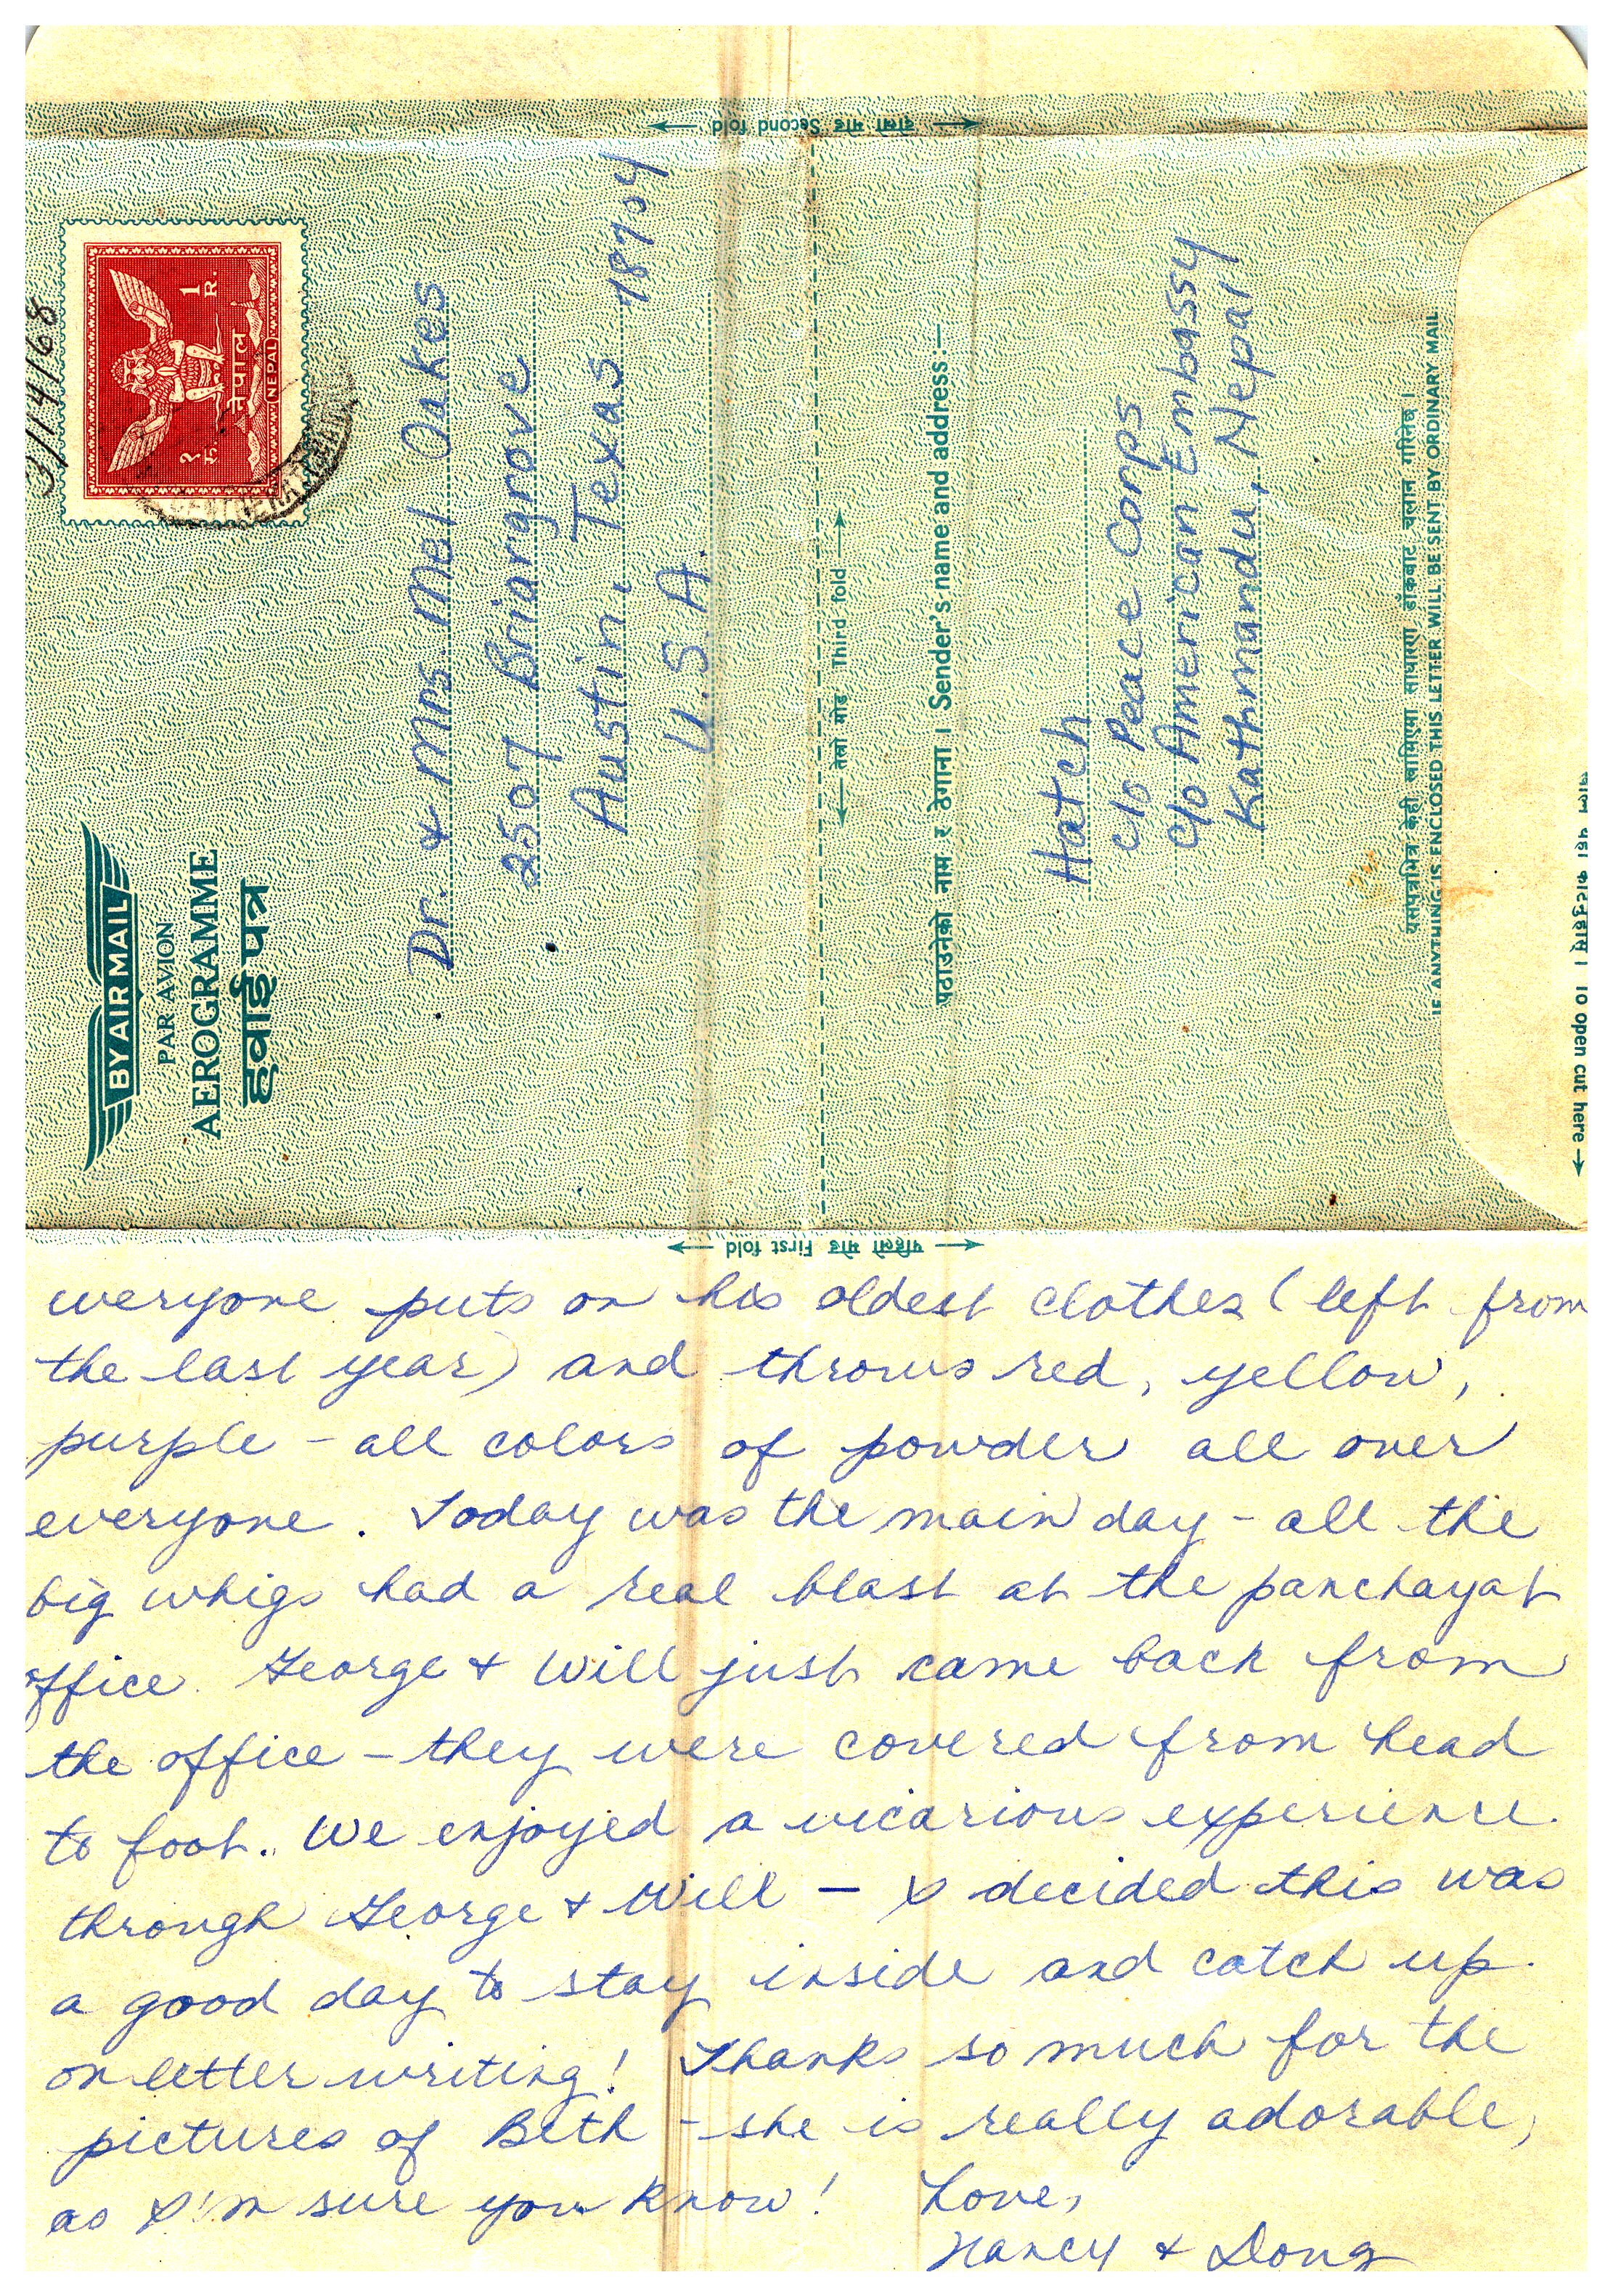 3/14/68
१ रु.
1 R.
नेपाल
NEPAL
BY AIR MAIL
PAR AVION
AEROGRAMME
हवाई पत्र
Dr. & Mrs. Mel Oakes
2507 Briargrove
Austin, Texas 78704
U.S.A.
दोस्रो मोड Second fold
तेस्रो मोड Third fold
पठाउनेको नाम र ठेगाना । Sender's name and address:—
Hatch
c/o Peace Corps
c/o American Embassy
Kathmandu, Nepal
यसपत्रभित्र केही खामिएमा साधारण डाँकबाट चलान गरिनेछ ।
IF ANYTHING IS ENCLOSED THIS LETTER WILL BE SENT BY ORDINARY MAIL
To open cut here
पहिलो मोड First fold
everyone puts on his oldest clothes (left from
the last year) and throws red, yellow,
purple – all colors of powder all over
everyone. Today was the main day – all the
big whigs had a real blast at the panchayat
office. George & Will just came back from
the office – they were covered from head
to foot. We enjoyed a vicarious experience
through George & Will – I decided this was
a good day to stay inside and catch up
on letter writing! Thanks so much for the
pictures of Beth – she is really adorable,
as I'm sure you know! Love,
Nancy & Doug